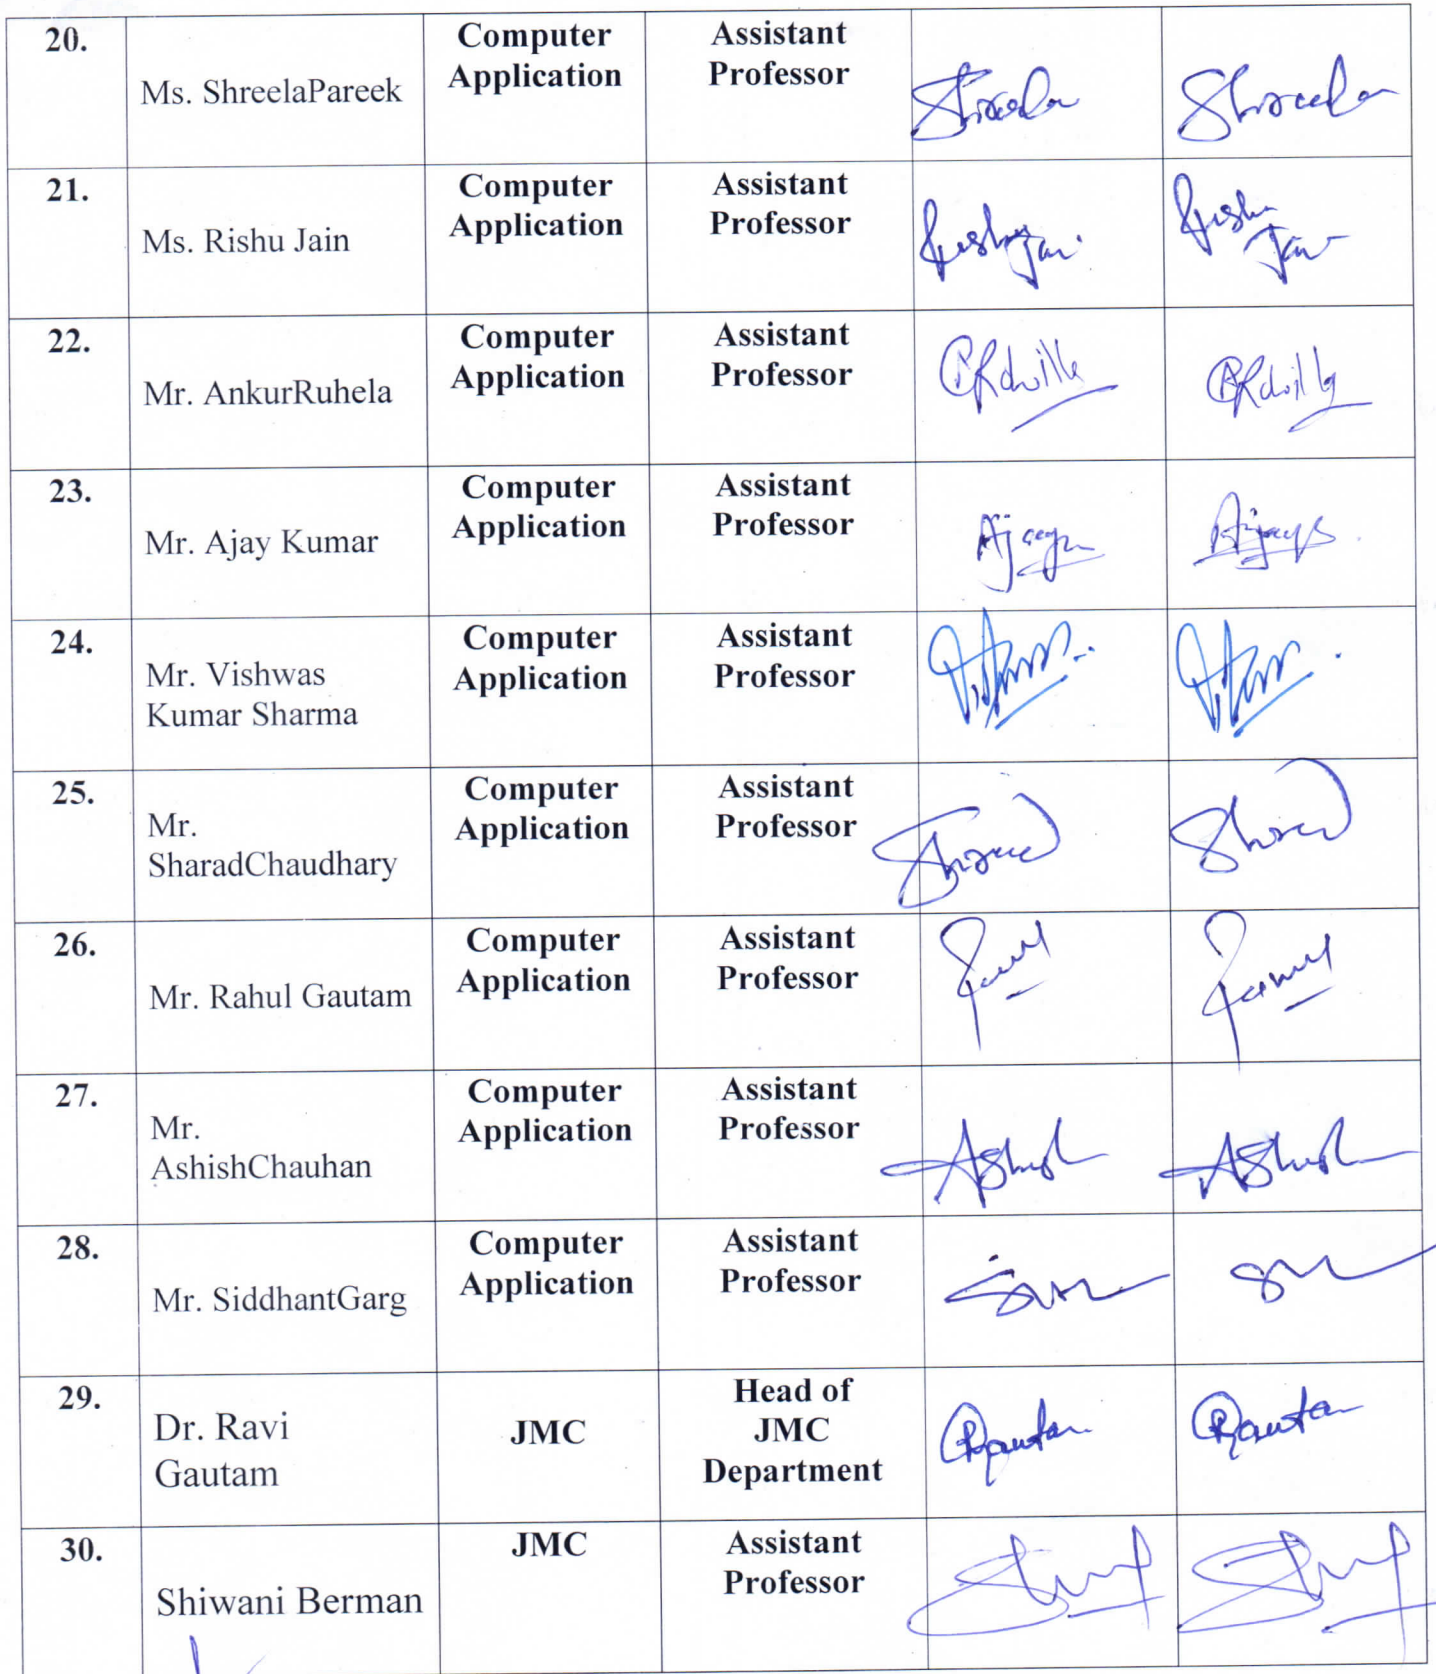 20.
Ms. ShreelaPareek
Computer
Application
Assistant
Professor
21.
Ms. Rishu Jain
Computer
Application
Assistant
Professor
Rishu
Jain
22.
Mr. AnkurRuhela
Computer
Application
Assistant
Professor
23.
Mr. Ajay Kumar
Computer
Application
Assistant
Professor
24.
Mr. Vishwas
Kumar Sharma
Computer
Application
Assistant
Professor
25.
Mr.
SharadChaudhary
Computer
Application
Assistant
Professor
Sharad
Sharad
26.
Mr. Rahul Gautam
Computer
Application
Assistant
Professor
27.
Mr.
AshishChauhan
Computer
Application
Assistant
Professor
Ashish
Ashish
28.
Mr. SiddhantGarg
Computer
Application
Assistant
Professor
29.
Dr. Ravi
Gautam
JMC
Head of
JMC
Department
30.
Shiwani Berman
JMC
Assistant
Professor